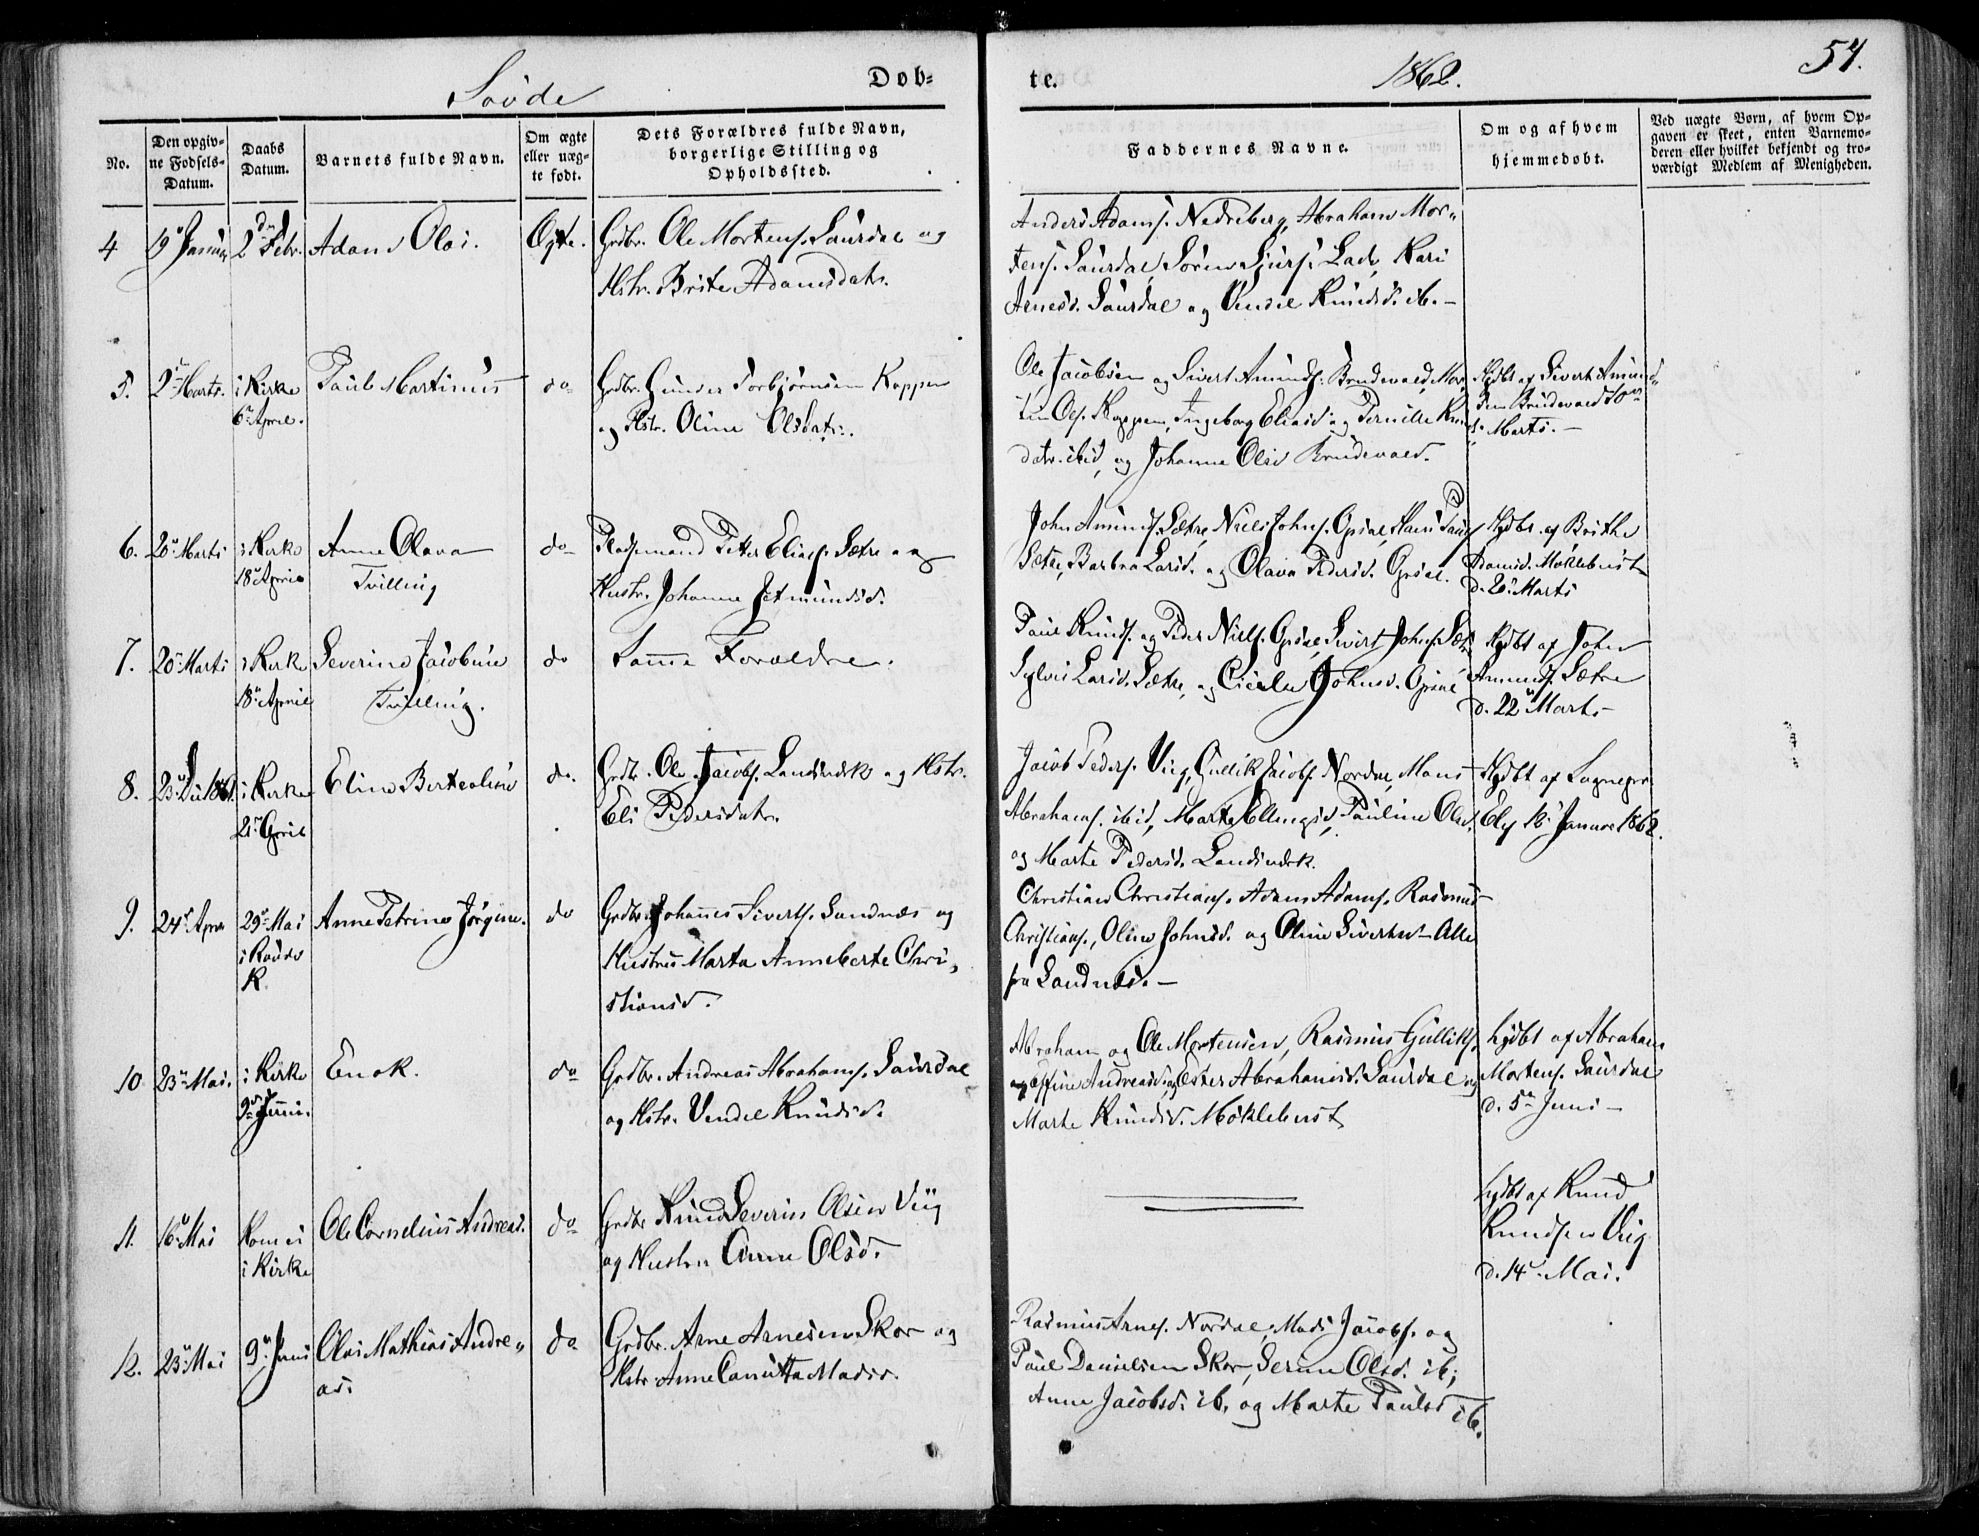 Søvde
Døb-
te.
1862.
54.
No.
Den opgiv-
ne Fødsels-
Datum.
Daabs
Datum.
Barnets fulde Navn.
Om ægte
eller uæg-
te født.
Dets Forældres fulde Navn,
borgerlige Stilling og
Opholdssted.
Faddernes Navne.
Om og af hvem
hjemmedøbt.
Ved uægte Børn, af hvem Op-
gaven er skeet, enten Barnemo-
deren eller hvilket bekjendt og tro-
værdigt Medlem af Menigheden.
4
2 Febr.
Adam Olai.
Ægte.
Grdbr. Ole Mortens. Saurdal og
Hstr. Brite Adamsdatr.
Anders Adams. Nedreberg, Abraham Mor-
tens. Saurdal, Søren Sjurs. Lade, Kari
Arnesd. Saurdal og Vendel Knudsd. ib. -
5.
2 Marts.
i Kirke
6 April.
Paul Martinus
do
Grdbr. Gunder Torbjørnsen Koppen
og Hstr. Oline Olsdatr.
Ole Jacobsen og Sivert Amunds. Brudevold, Mor-
ten Ols. Koppen, Ingeborg Eliasd. og Pernille Knuds-
datr. ibid, og Johanne Olsd Brudevold.
Hjdbt af Sivert Amund-
sen Brudevold 10
Marts. -
6.
20 Marts
i Kirke
18 April
Anne Olava
Tvilling
do
Pladsmand Peter Elias. Sætre og
Hustr. Johanne Jetmundsd.
John Amunds. Sætre, Niels Johns. Opsal, Hans Pauls
Sætre, Barbra Larsd. og Olava Pedersd. Opsal.
Hjdbt. af Brithe
Adamsd. Møklebust
d. 20 Marts
7.
20 Marts
i Kirke
18 April
Severine Jacobine
Tvilling.
do
Samme Forældre.
Paul Knuds. og Peder Niels. Opsal, Sivert Johns. Sætre
Sylvi Larsd. Sætre, og Johnsd. Opsal
Hjdbt af John
Amunds. Sætre
d. 22 Marts
8.
23 Dec 1861.
i Kirke
21 April
Eline Bertheline
do.
Grdbr. Ole Jacobs. Landsverk og Hstr.
Eli Pedersdatr.
Jacob Peders. Viig, Gullik Jacobs. Nordal, Mons
Abrahams. ibid, Marte Ellingsd, Pauline Olsd.
og Marte Pedersd. Landsverk.
Hjdbt af Sognepr
16 Januar 1862.
9.
24 April
29 Mai
i Rovde
K.
Anne Petrine Jørgine.
do
Grdbr. Johannes Siverts. Sandnæs og
Hustru Marta Anneberte Chri-
stiansd.
Christian Christians. Adam Adams. Rasmus
Christians., Oline Johnsd. og Oline Sivertsd - Alle
fra Sandnæs. -
10
23 Mai.
i Kirke
9 Juni.
Enok.
do
Grdbr. Andreas Abrahams. Saurdal
og Hstr. Vendel Knudsd.
Abraham og Ole Mortensen, Rasmus Gulliks.
Andreasd. og Ester Abrahamsd. Saurdal og
Marte Knudsd. Møklebust
Hjdbt af Abraham
Mortens. Saurdal
d. 5 Juni -
11.
16 Mai
Kom ei
i Kirke
Ole Cornelius Andreas.
do
Grdbr Knud Severin Olsen Viig
og Hustru Anne Olsd.
Hjdbt af Knud
Knudsen Viig
d. 14 Mai.
12.
23 Mai
9 Juni
Olai Mathias Andre-
as.
do
Grdbr. Arne Arnesen Skor og
Hstr. Anne Canutta Madsd.
Rasmus Arnes. Nordal, Mads Jacobs. og
Paul Danielsen Skor, Serine Olsd. ib;
Anne Jacobsd. ib, og Marte Paulsd ib.